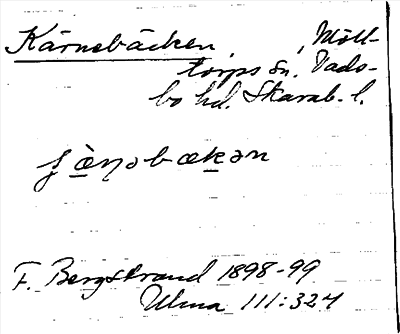 Kärnebäcken, , Möll-
torps sn. Vads-
bo hd. Skarab. l.
bækən
F. Bergstrand 1898-99
Ulma 111:324